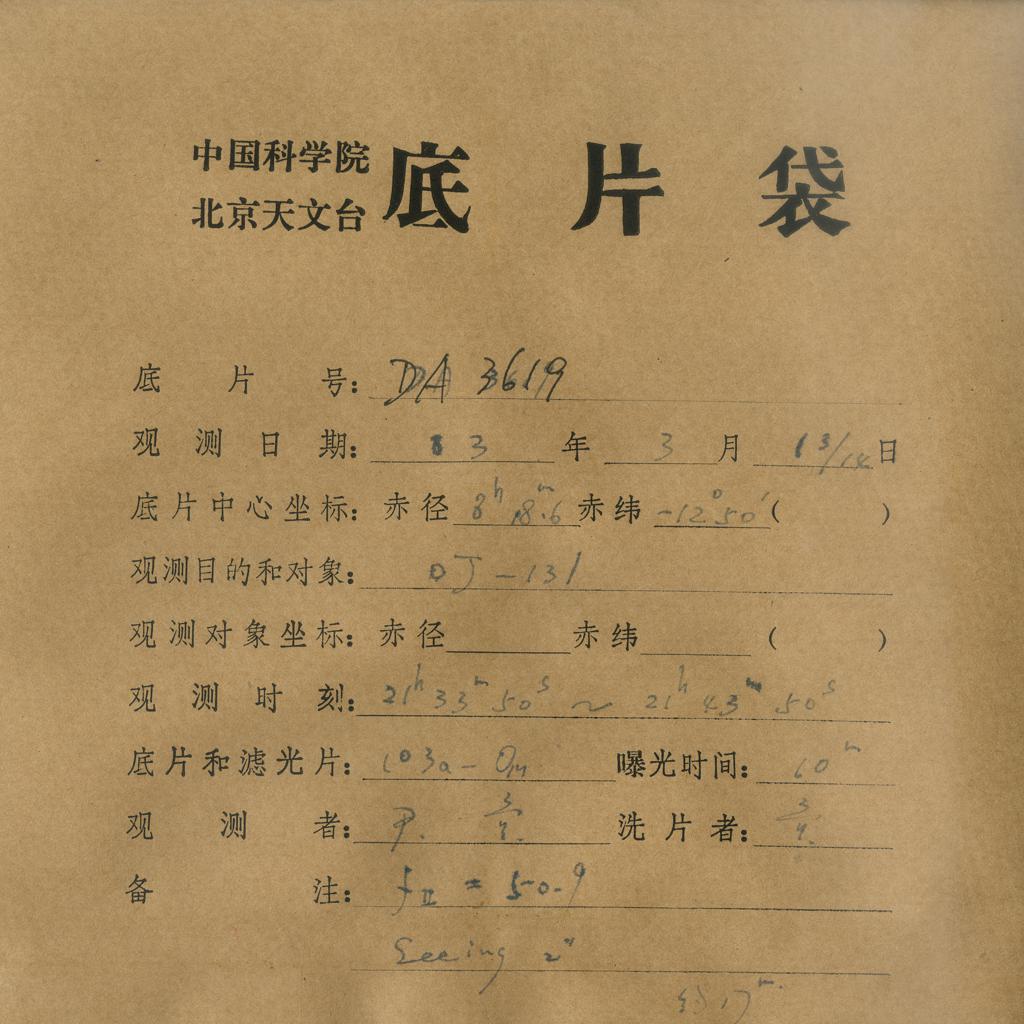 中国科学院
北京天文台
底片袋
底片号: DA 3619
观测日期: 83 年 3 月 13/14 日
底片中心坐标: 赤径 8h 18m.6 赤纬 -12°50′ ( )
观测目的和对象: OJ-131
观测对象坐标: 赤径 赤纬 ( )
观测时刻: 21h 33m 50s ~ 21h 43m 50s
底片和滤光片: 103a-O 曝光时间: 10m
观测者: 洗片者:
备注: fII = 50.9
Seeing 2"
17m